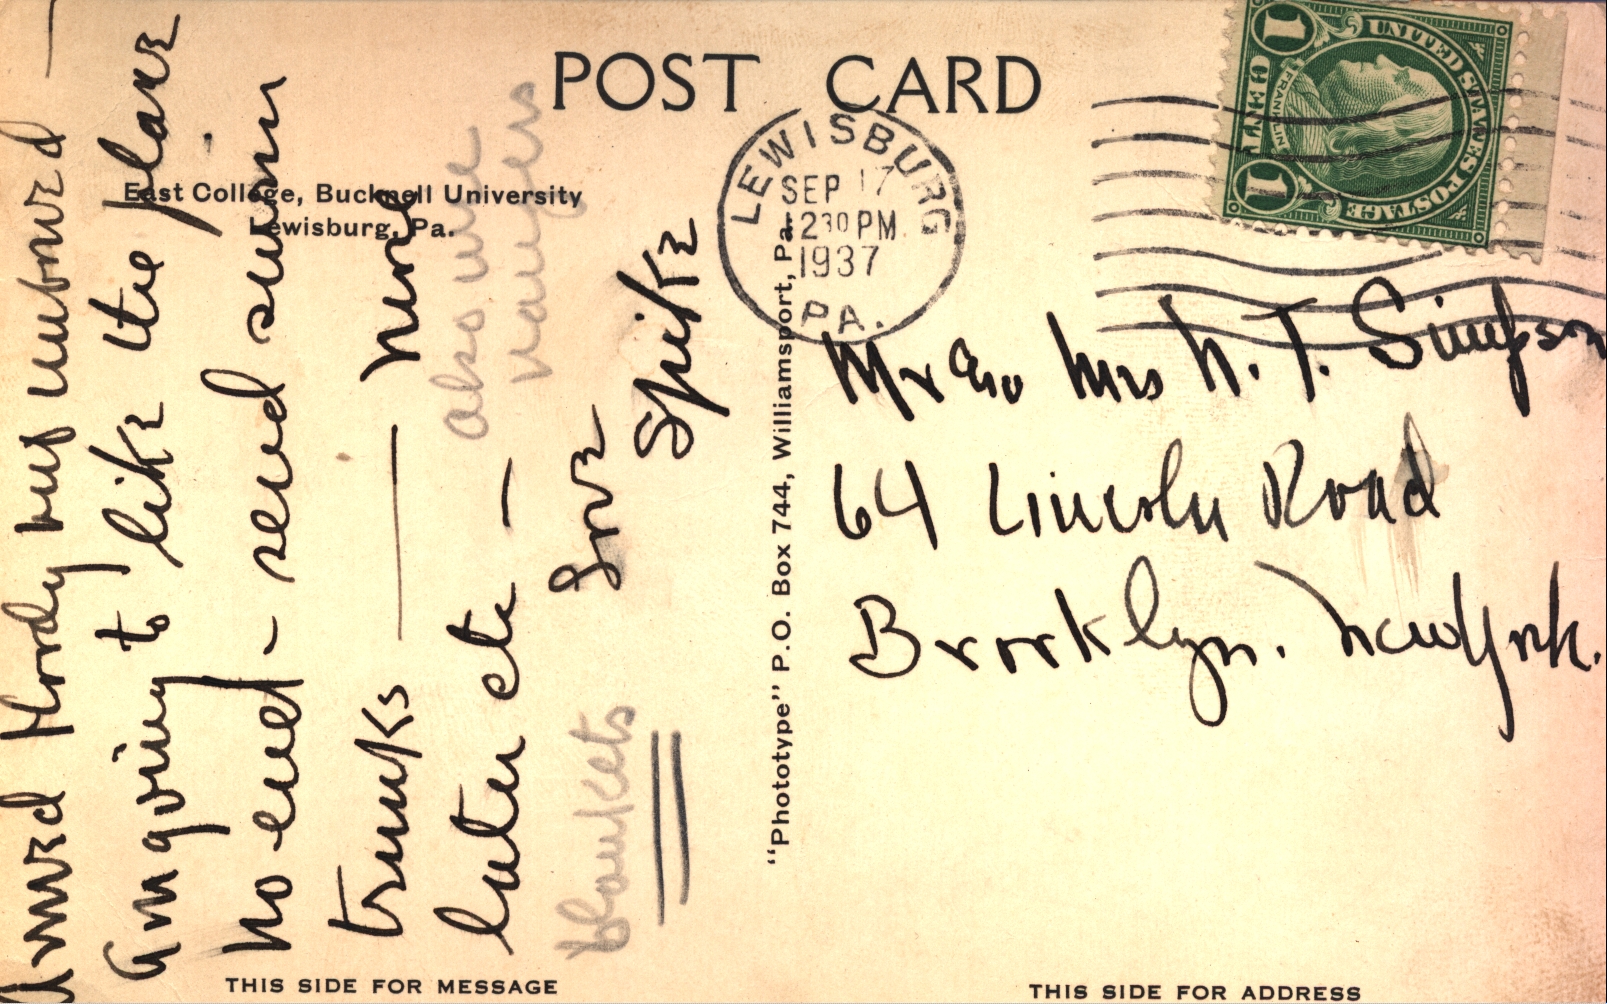 POST CARD
East College, Bucknell University
Lewisburg, Pa.
Arrived bloody but unbowed —
Am going to like the place
no end – send swim
trunks — more
later etc —
also wire
hangers
blankets
Love
Spike
"Phototype" P.O. Box 744, Williamsport, Pa.
LEWISBURG
SEP 17
1230 PM
1937
PA.
UNITED STATES POSTAGE
FRANKLIN
1 CENT 1
Mr and Mrs T. Simpson
64 Lincoln Road
Brooklyn. New York.
THIS SIDE FOR MESSAGE
THIS SIDE FOR ADDRESS